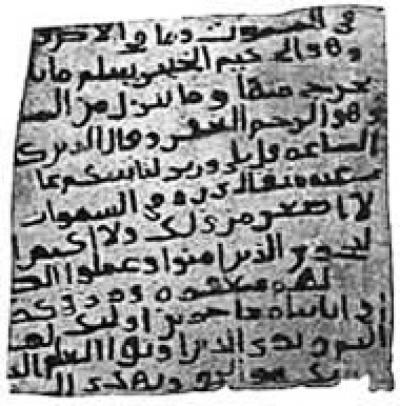 في السموت وما في الارض
وهو الحكيم الخبير يعلم ما يلج
يخرج منها وما ينزل من السما
وهو الرحيم الغفور وقال الذين ك
الساعه قل بلى وربي لتاتينكم عا
عنه مثقال ذره في السموات
لا اصغر من ذلك ولا اكبر ا
ليجزي الذين امنوا وعملوا الص
لهم مغفره ورزق ك
في اياتنا معاجزين اولئك لهم
اليم ويرى الذين اوتوا العلم الذ
هو الحق ويهدي الى